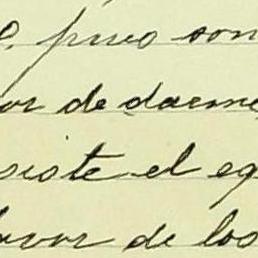 pues son
or de darme
siste el eq
favor de los